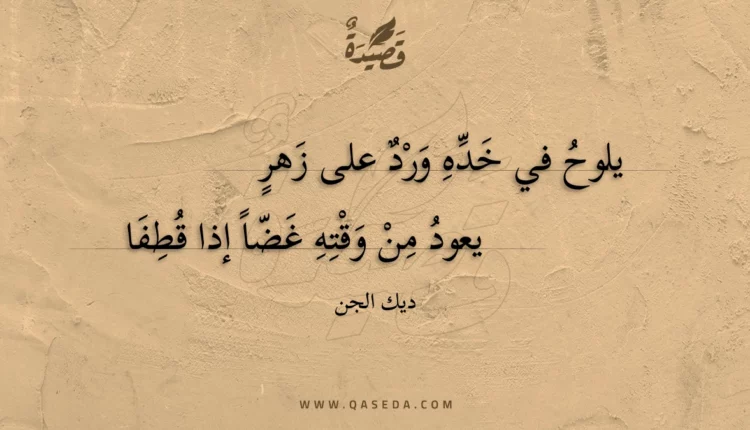 قَصِيْدَةٌ
يلوحُ في خَدِّهِ وَرْدٌ على زَهرٍ
يعودُ مِنْ وَقْتِهِ غَضّاً إذا قُطِفَا
ديك الجن
WWW.QASEDA.COM